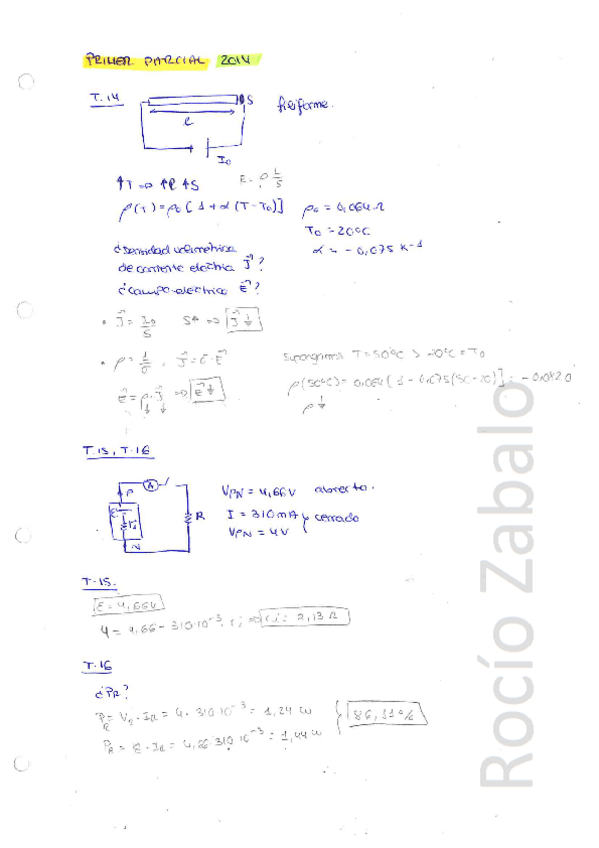 PRIMER PARCIAL 2014
T.14
S
filiforme.
l
I₀
↑T ⇒ ↑l ↑S
R = ρ L/S
ρ(T) = ρ₀ [1 + α (T - T₀)]
ρ₀ = 0,064 Ω
T₀ = 20ºC
α = -0,075 K-1
¿densidad volumétrica
de corriente eléctrica J⃗?
¿campo eléctrico E⃗?
• J⃗ = I₀/S S↑ ⇒ J⃗ ↓
• ρ = 1/σ , J⃗ = σ·E⃗
Supongamos T = 50ºC > 20ºC = T₀
E⃗ = ρ·J⃗ ⇒ E⃗ ↓
ρ(50ºC) = 0,064 [1 - 0,075(50-20)] = -0,0820
ρ ↓
T.15, T.16
A
P
R
N
VPN = 4,66V abierto.
I = 310 mA y cerrado
VPN = 4V
T-15.
E = 4,66V
4 = 4,66 - 310·10⁻³ · ri ⇒ ri = 2,13 Ω
T.16
¿PR?
PR = VR · IR = 4 · 310·10⁻³ = 1,24 W
86,11%
PR = E · IR = 4,66·310·10⁻³ = 1,44 W
Rocío Zabalo